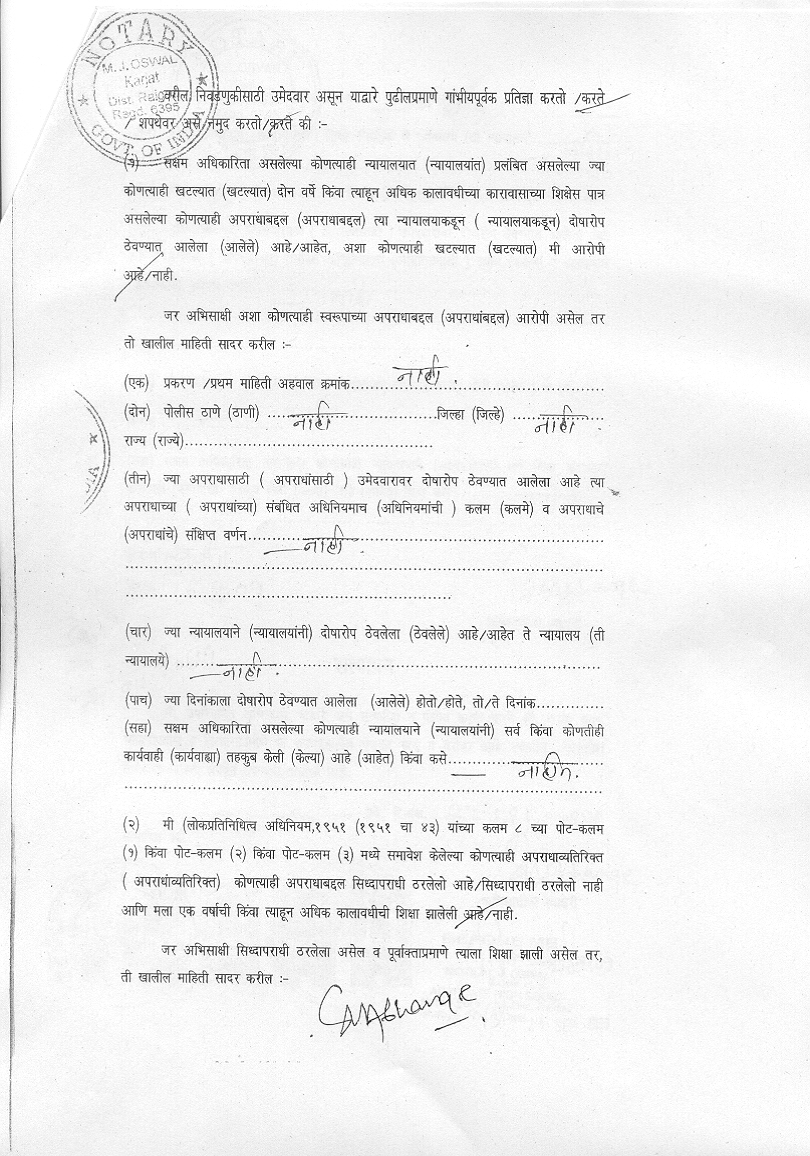 NOTARY
M. J. OSWAL
Karjat
Dist. Raigad
Regd. 6395
GOVT. OF INDIA
वरील निवडणुकीसाठी उमेदवार असून याद्वारे पुढीलप्रमाणे गांभीयपूर्वक प्रतिज्ञा करतो /करते
/ शपथेवर असे नमुद करतो/करते की :-
(१) सक्षम अधिकारिता असलेल्या कोणत्याही न्यायालयात (न्यायालयांत) प्रलंबित असलेल्या ज्या
कोणत्याही खटल्यात (खटल्यात) दोन वर्षे किंवा त्याहून अधिक कालावधीच्या कारावासाच्या शिक्षेस पात्र
असलेल्या कोणत्याही अपराधाबद्दल (अपराधाबद्दल) त्या न्यायालयाकडून ( न्यायालयाकडून) दोषारोप
ठेवण्यात आलेला (आलेले) आहे/आहेत, अशा कोणत्याही खटल्यात (खटल्यात) मी आरोपी
आहे/नाही.
जर अभिसाक्षी अशा कोणत्याही स्वरूपाच्या अपराधाबद्दल (अपराधांबद्दल) आरोपी असेल तर
तो खालील माहिती सादर करील :-
(एक) प्रकरण /प्रथम माहिती अहवाल क्रमांक.......नाही.......
(दोन) पोलीस ठाणे (ठाणी) .......नाही.......जिल्हा (जिल्हे) .......नाही.......
राज्य (राज्ये).......
(तीन) ज्या अपराधासाठी ( अपराधांसाठी ) उमेदवारावर दोषारोप ठेवण्यात आलेला आहे त्या
अपराधाच्या ( अपराधांच्या) संबंधित अधिनियमाच (अधिनियमांची ) कलम (कलमे) व अपराधाचे
(अपराधांचे) संक्षिप्त वर्णन.......नाही.......
(चार) ज्या न्यायालयाने (न्यायालयांनी) दोषारोप ठेवलेला (ठेवलेले) आहे/आहेत ते न्यायालय (ती
न्यायालये) .......नाही.......
(पाच) ज्या दिनांकाला दोषारोप ठेवण्यात आलेला (आलेले) होतो/होते, तो/ते दिनांक.......
(सहा) सक्षम अधिकारिता असलेल्या कोणत्याही न्यायालयाने (न्यायालयांनी) सर्व किंवा कोणतीही
कार्यवाही (कार्यवाह्या) तहकुब केली (केल्या) आहे (आहेत) किंवा कसे.......
(२) मी (लोकप्रतिनिधित्व अधिनियम,१९५१ (१९५१ चा ४३) यांच्या कलम ८ च्या पोट-कलम
(१) किंवा पोट-कलम (२) किंवा पोट-कलम (३) मध्ये समावेश केलेल्या कोणत्याही अपराधाव्यतिरिक्त
( अपराधांव्यतिरिक्त) कोणत्याही अपराधाबद्दल सिध्दापराधी ठरलेलो आहे/सिध्दापराधी ठरलेलो नाही
आणि मला एक वर्षाची किंवा त्याहून अधिक कालावधीची शिक्षा झालेली आहे/नाही.
जर अभिसाक्षी सिध्दापराधी ठरलेला असेल व पूर्वाक्ताप्रमाणे त्याला शिक्षा झाली असेल तर,
ती खालील माहिती सादर करील :-